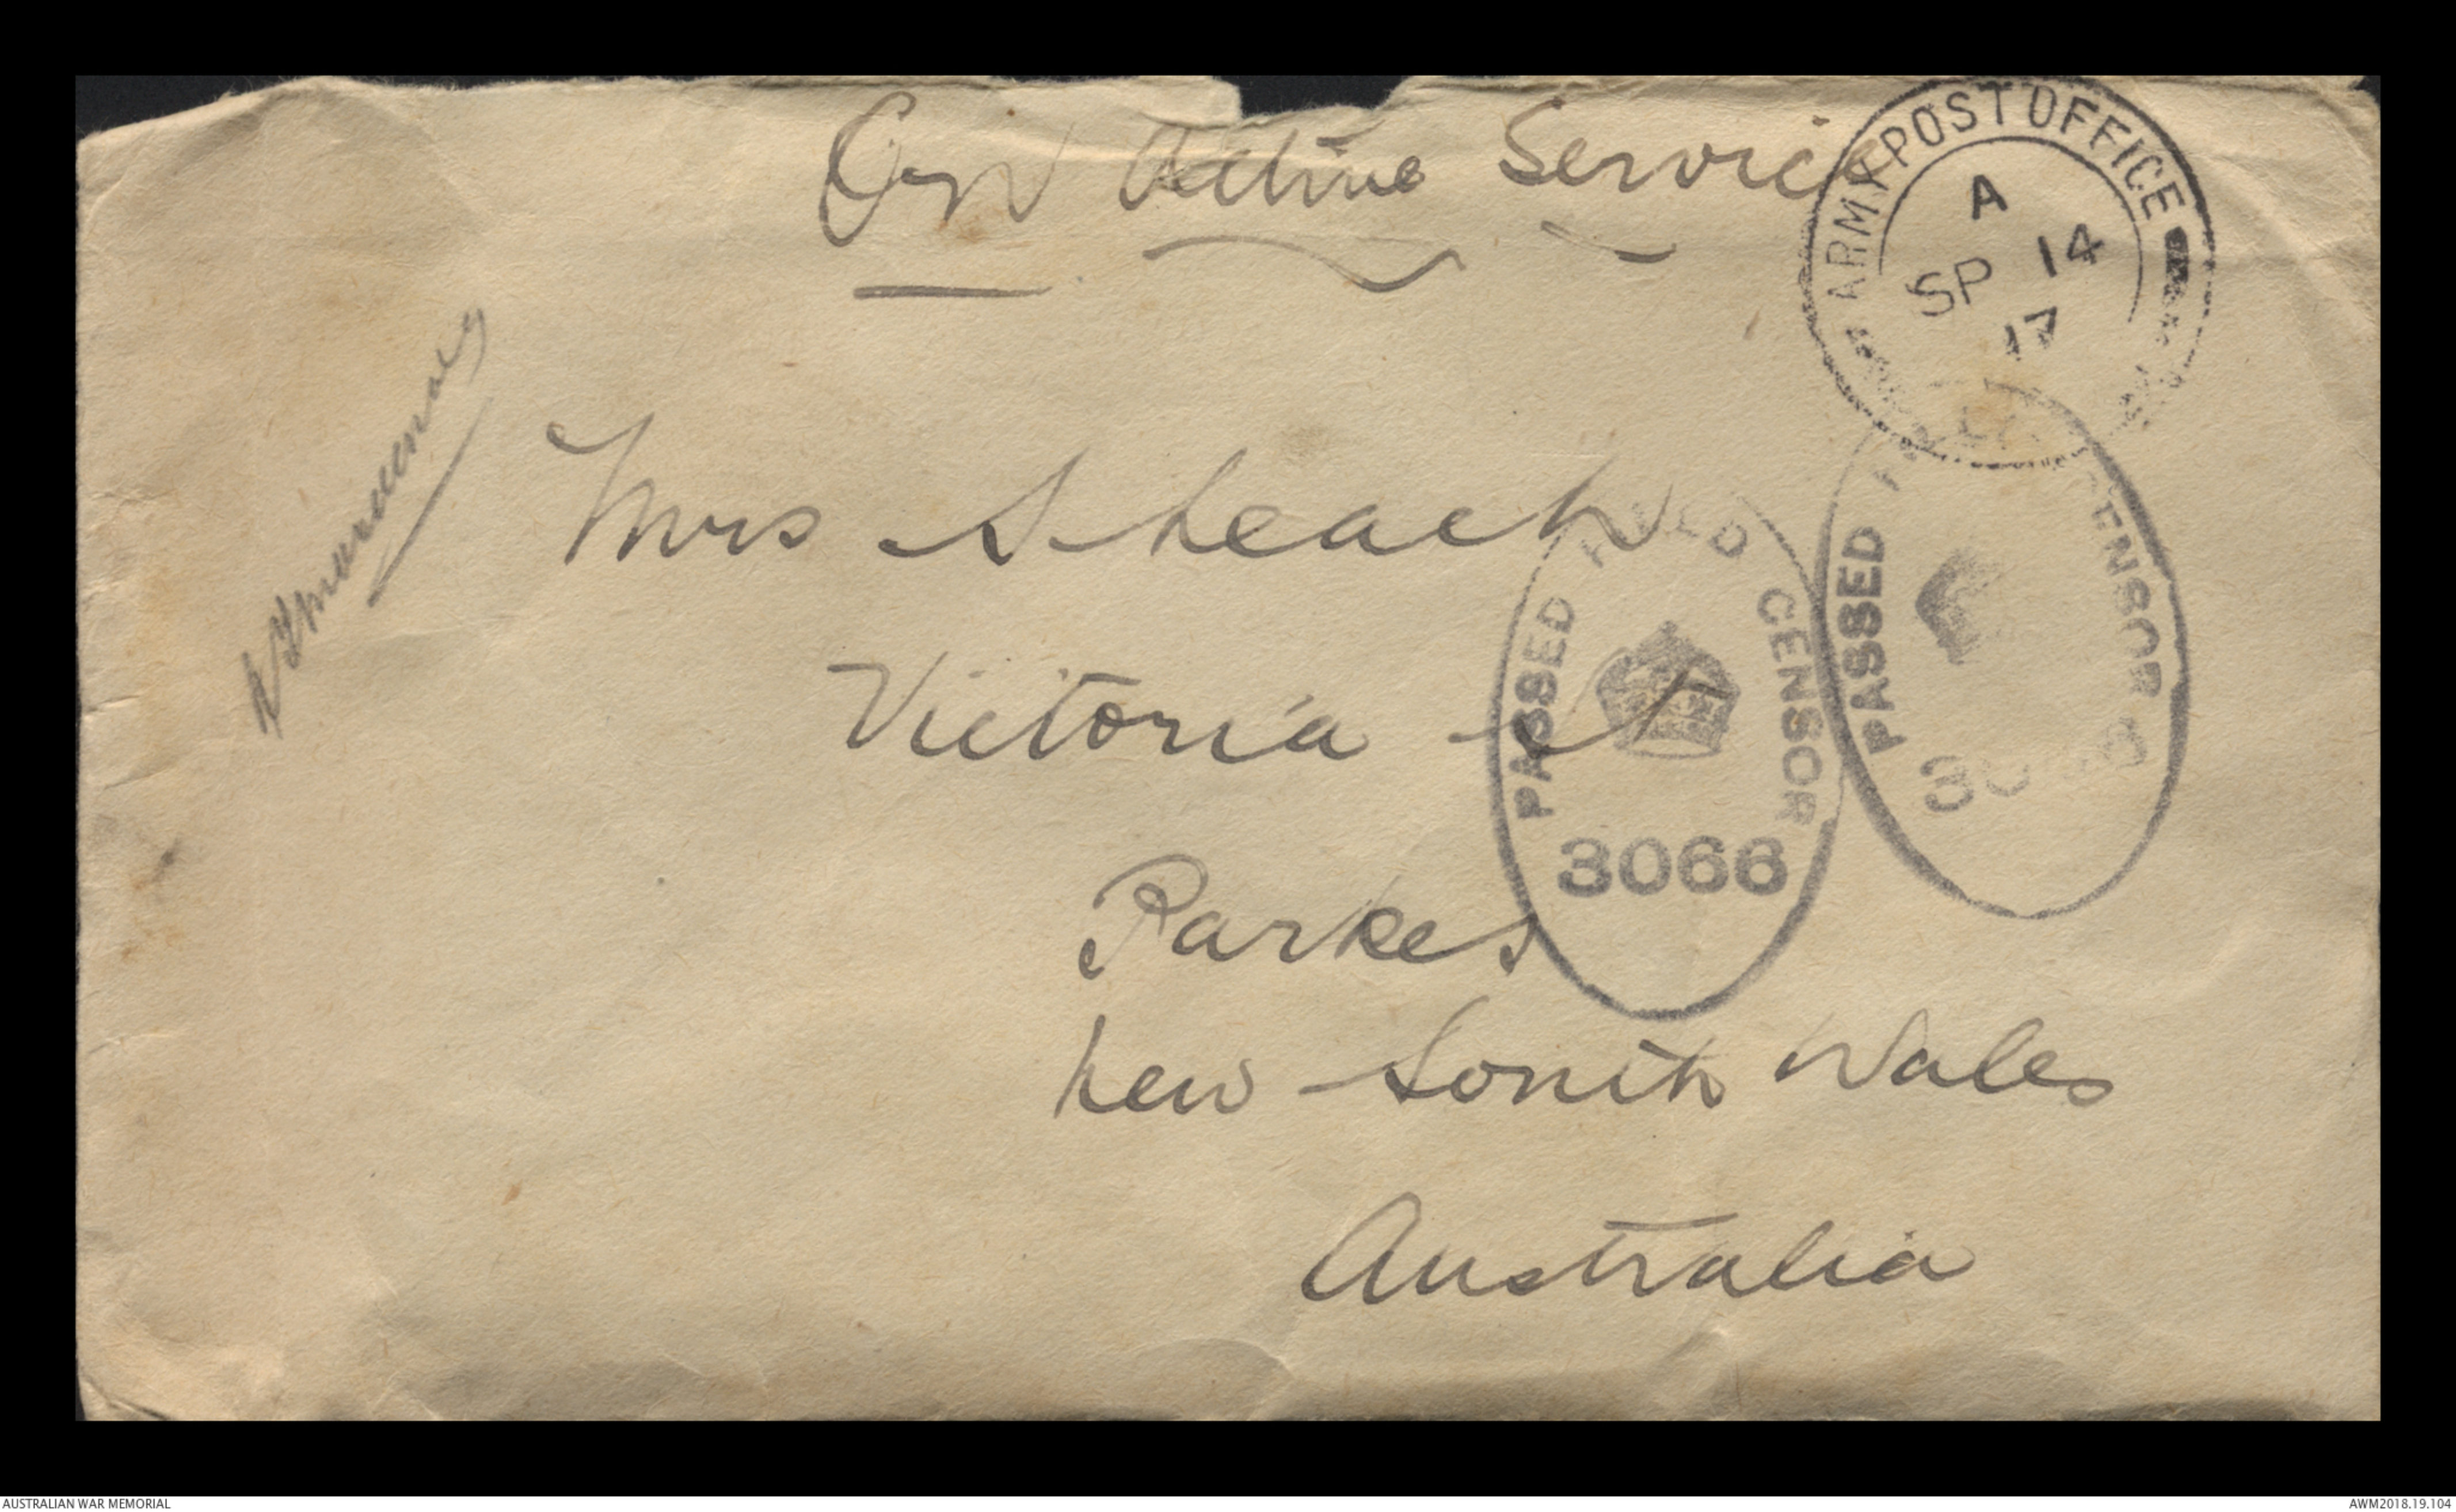 On Active Service
ARMY POST OFFICE
A
SP 14
17
Mrs S Leach
PASSED FIELD CENSOR
3066
PASSED CENSOR
Victoria St
Parkes
New South Wales
Australia
AUSTRALIAN WAR MEMORIAL
AWM2018.19.104